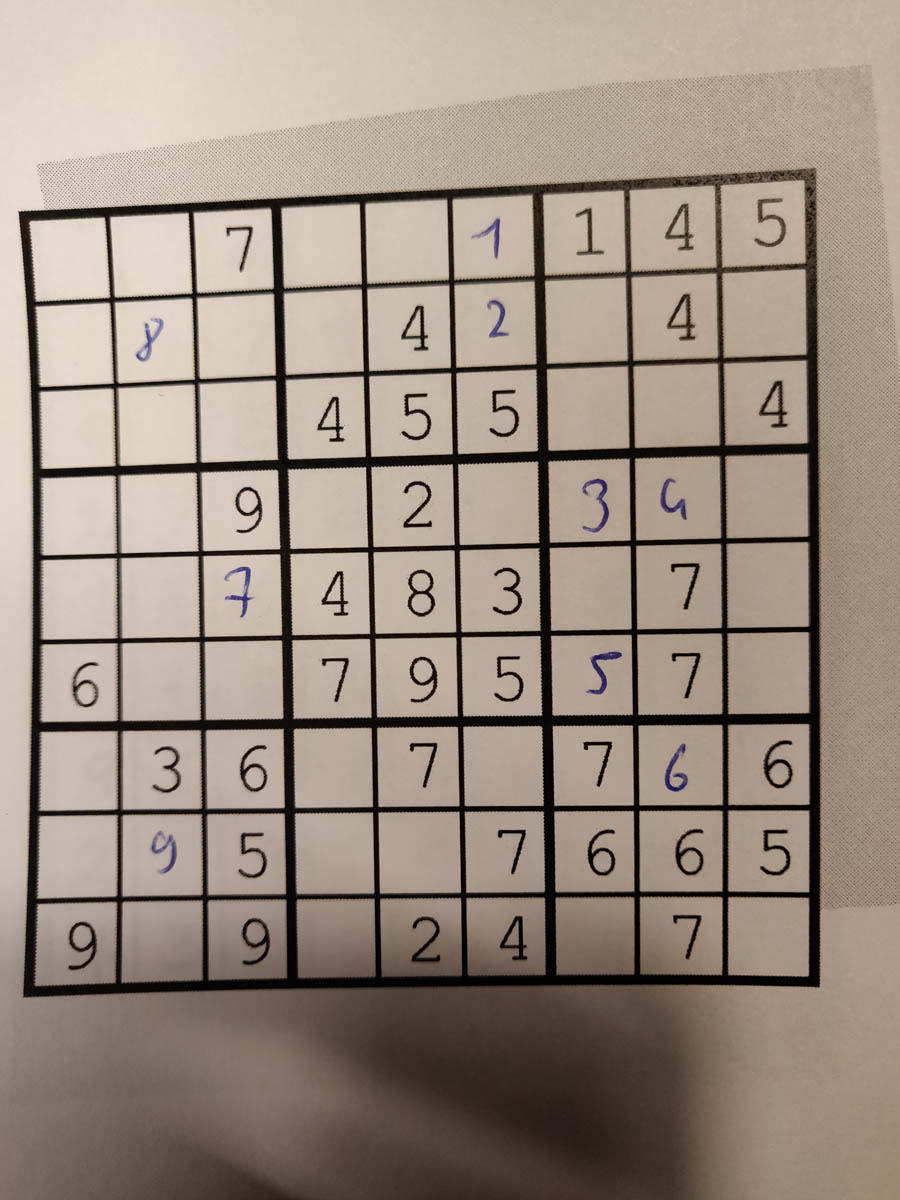 7 1 1 4 5
8 4 2 4
4 5 5 4
9 2 3 4
7 4 8 3 7
6 7 9 5 5 7
3 6 7 7 6 6
9 5 7 6 6 5
9 9 2 4 7